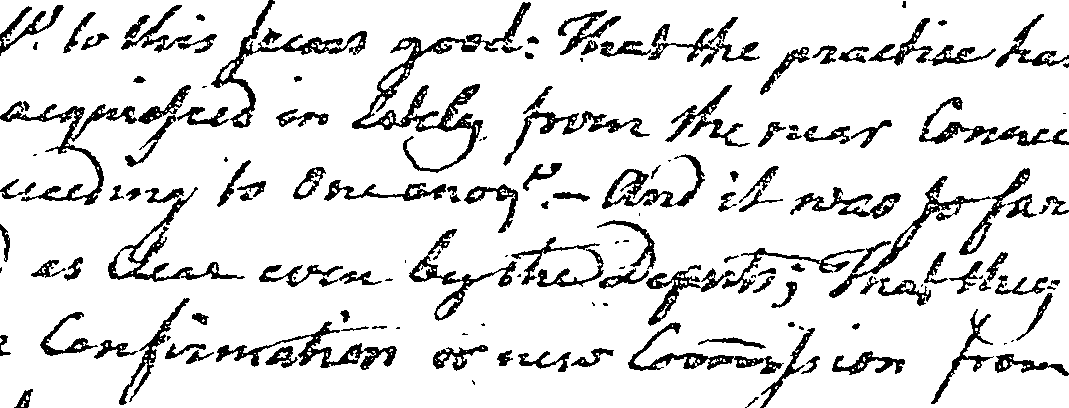 to this seems good: That the practise has
acquiesced in lately from the near Connec
ceeding to One anoyr. — And it was so far
as clear even by the Defents; That they
Confirmation or new Com̄ission from